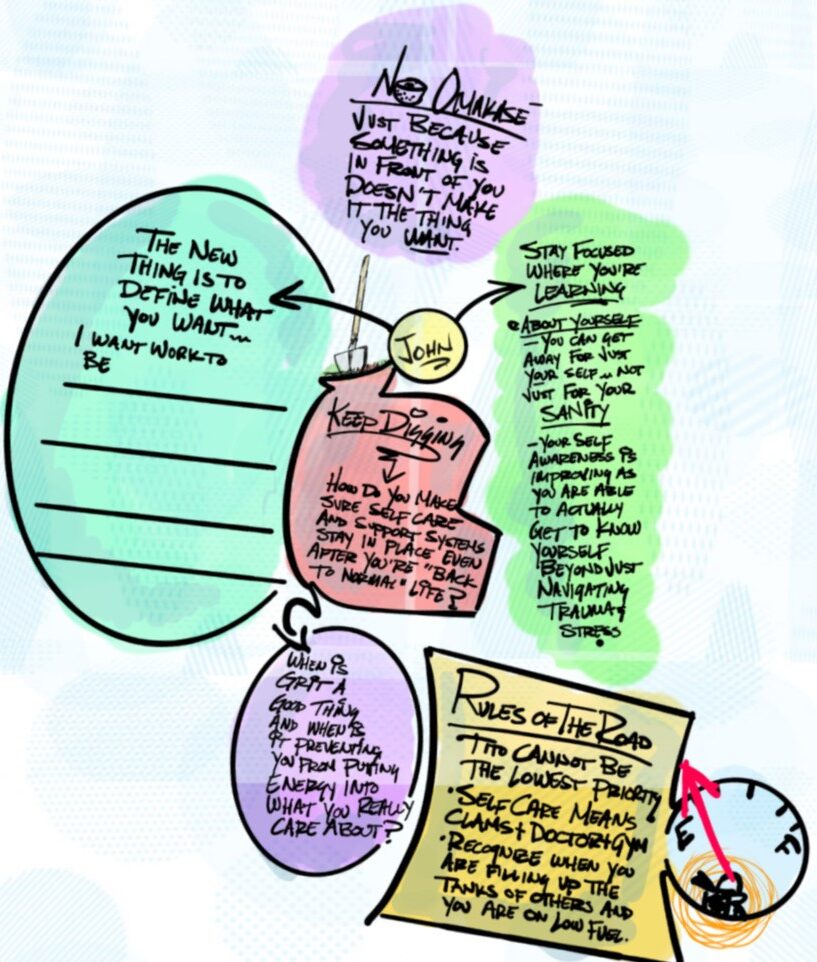 No OMAKASE
JUST BECAUSE
SOMETHING IS
IN FRONT OF YOU
DOESN'T MAKE
IT THE THING
YOU WANT.
THE NEW
THING IS TO
DEFINE WHAT
YOU WANT...
I WANT WORK TO
BE
JOHN
STAY FOCUSED
WHERE YOU'RE
LEARNING
• ABOUT YOURSELF
- YOU CAN GET
AWAY FOR JUST
YOUR SELF... NOT
JUST FOR YOUR
SANITY
- YOUR SELF
AWARENESS IS
IMPROVING AS
YOU ARE ABLE
TO ACTUALLY
GET TO KNOW
YOURSELF
BEYOND JUST
NAVIGATING
TRAUMA &
STRESS
KEEP DIGGING
HOW DO YOU MAKE
SURE SELF CARE
AND SUPPORT SYSTEMS
STAY IN PLACE EVEN
AFTER YOU'RE "BACK
TO NORMAL" LIFE?
WHEN IS
GRIT A
GOOD THING
AND WHEN IS
IT PREVENTING
YOU FROM PUTTING
ENERGY INTO
WHAT YOU REALLY
CARE ABOUT?
RULES OF THE ROAD
• TITO CANNOT BE
THE LOWEST PRIORITY
• SELF CARE MEANS
CLAMS + DOCTOR + GYM
• RECOGNIZE WHEN YOU
ARE FILLING UP THE
TANKS OF OTHERS AND
YOU ARE ON LOW FUEL.
E
F